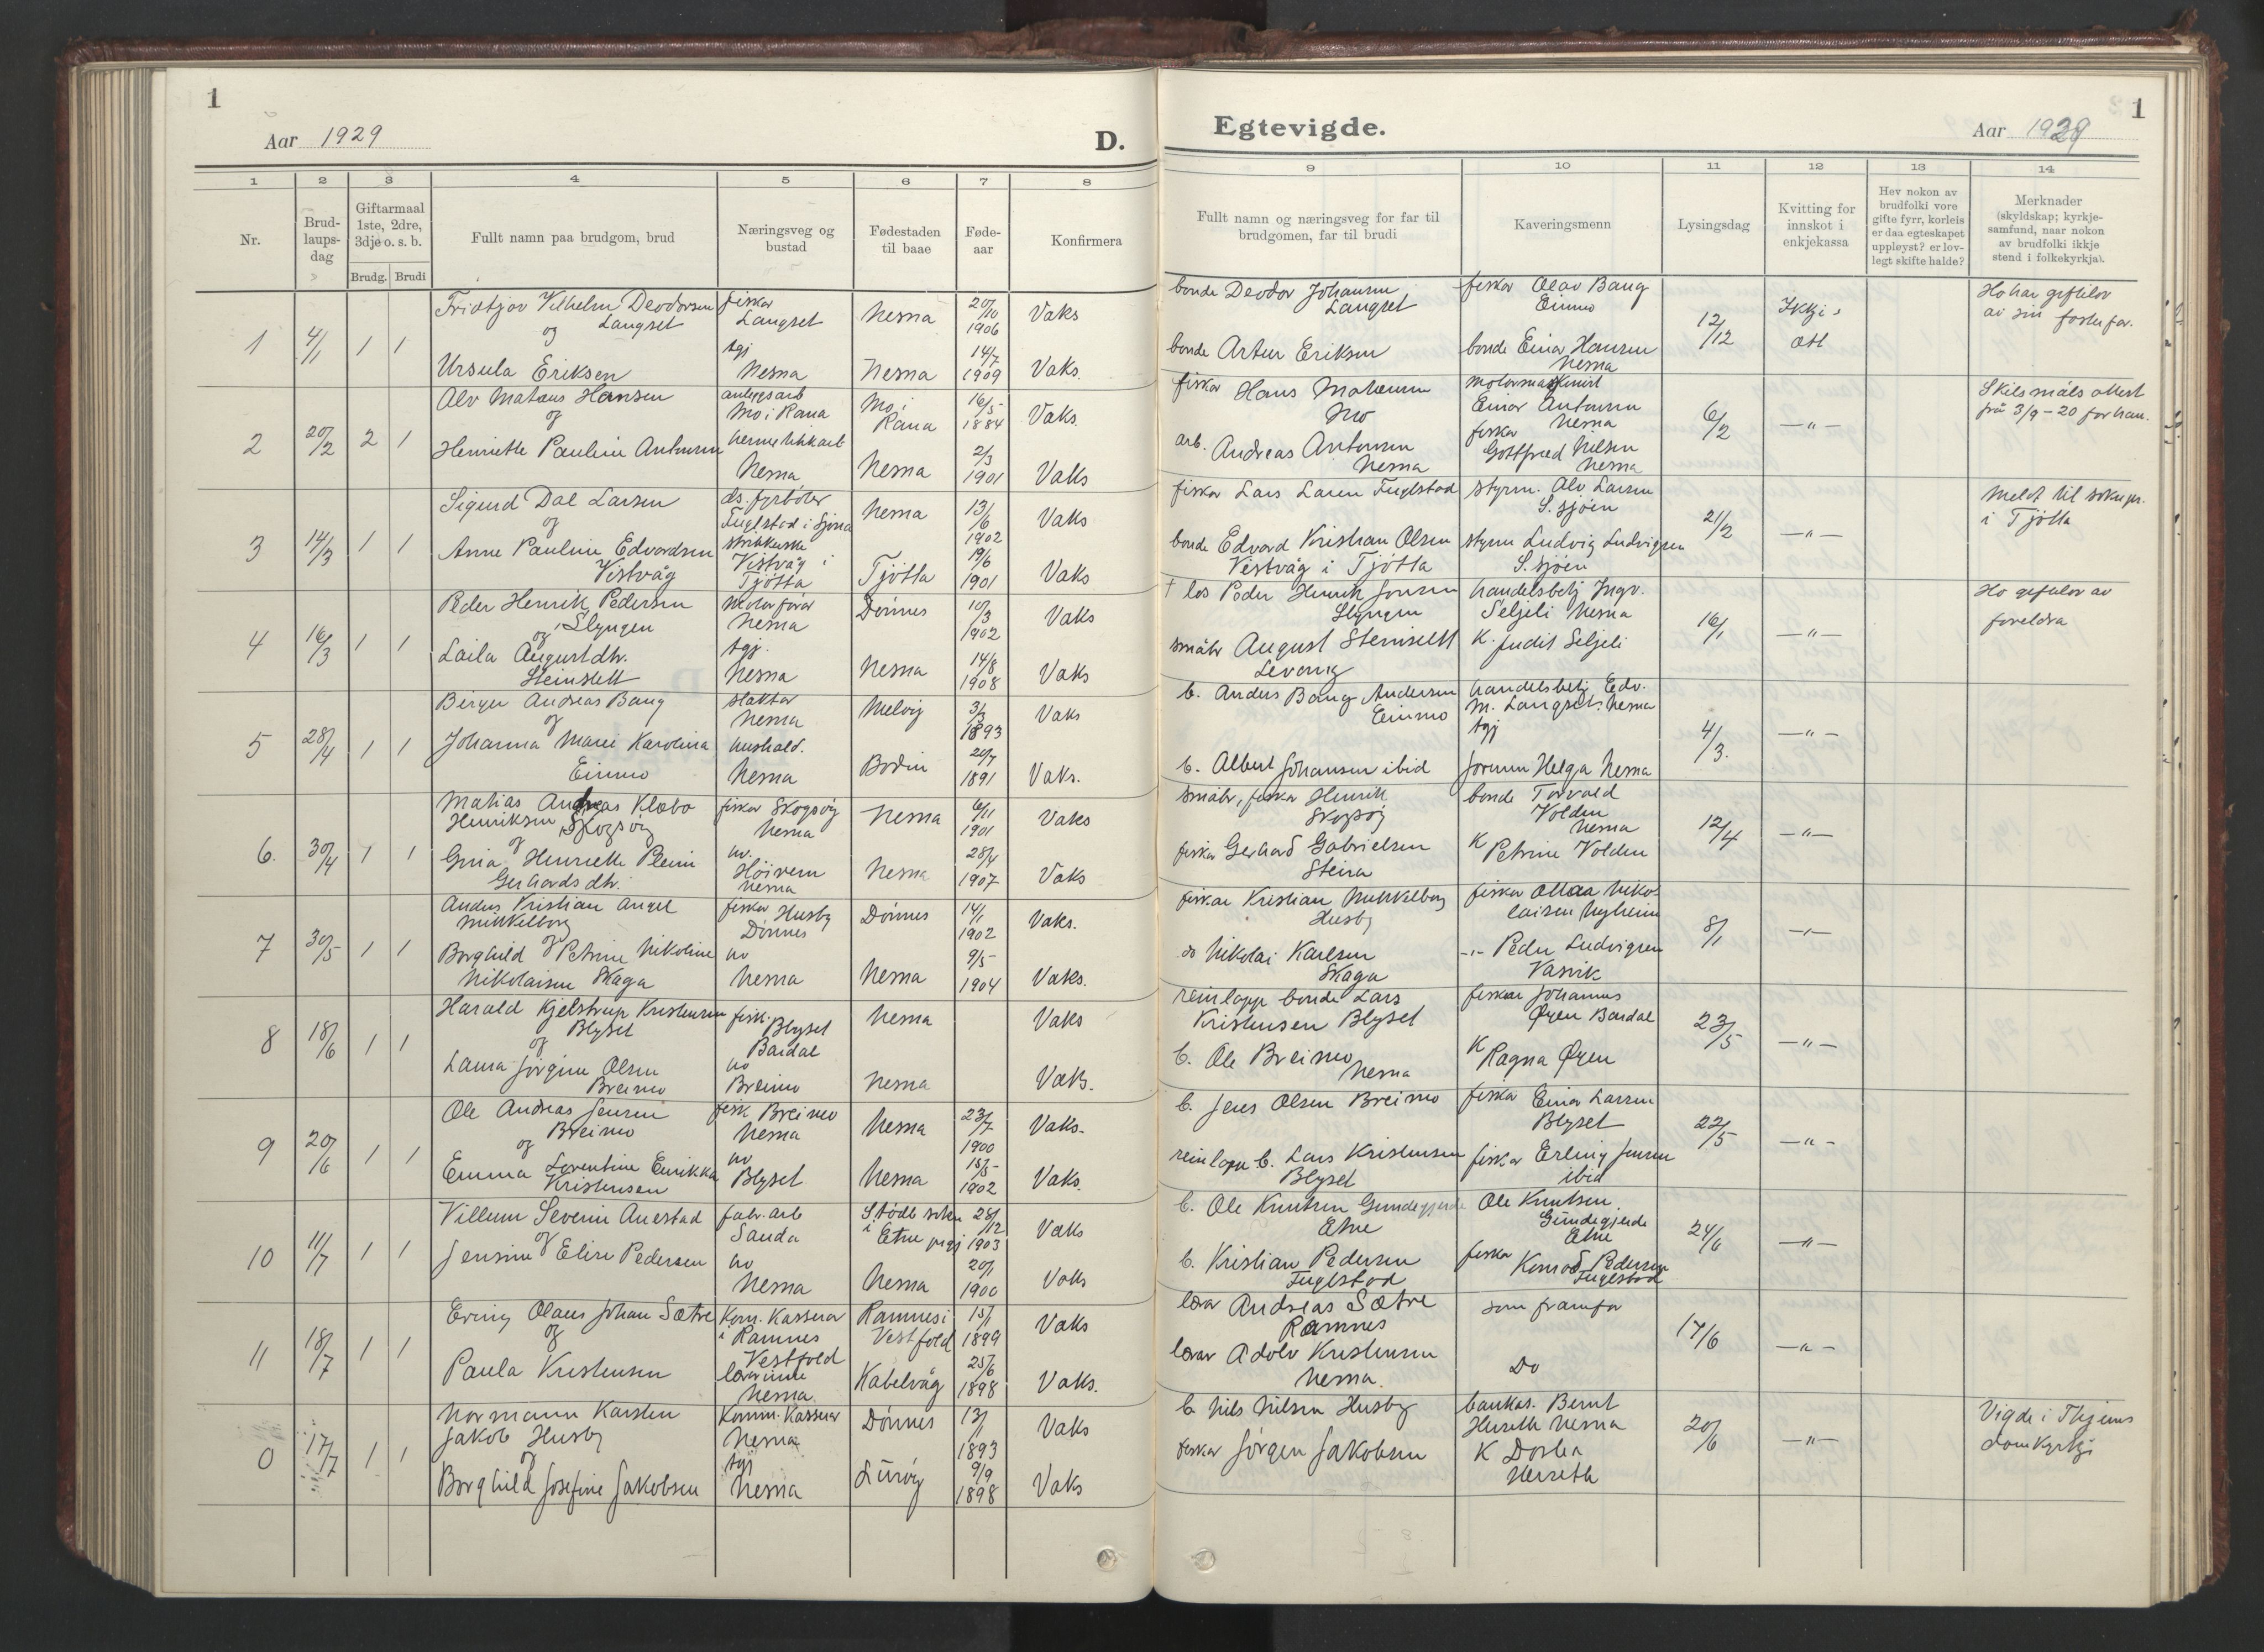 1
Aar 1929
D.
1 2 3 4 5 6 7 8
Nr.
Brud-
laups-
dag
Giftarmaal
1ste, 2dre,
3dje o. s. b.
Brudg. Brudi
Fullt namn paa brudgom, brud
Næringsveg og
bustad
Fødestaden
til baae
Føde-
aar
Konfirmera
1 4/1 1 1
Fridtjov Vilhelm Deodorsen
og Langset
Ursula Eriksen
fiskar
Langset
tgj
Nesna
Nesna
Nesna
20/10
1906
14/7
1909
Vaks
Vaks.
2 20/2 2 1
Alv Mataus Hansen
og
Henriette Pauline Antonsen
anleggsarb
Mo i Rana
Nesna
Mo i
Rana
Nesna
16/5
1884
2/3
1901
Vaks.
Vaks
3 14/3 1 1
Sigurd Dal Larsen
og
Anne Pauline Edvardsen
Vistvåg
ds. fyrböter
Fuglstad i Sjona
Vistvåg i
Tjötta
Nesna
Tjötta
13/6
1902
19/6
1901
Vaks
Vaks
4 16/3 1 1
Peder Henrik Pedersen
og Slyngen
Laila Augustdtr.
Steinslett
Motorförar
Nesna
tgj.
Nesna
Dönnes
Nesna
10/3
1902
14/8
1908
Vaks
Vaks
5 28/4 1 1
Birger Andreas Bang
og
Johanna Marie Karolina
Einmo
slaktar
Nesna
hushald.
Nesna
Melöy
Bodin
3/3
1893
1891
Vaks
Vaks.
6. 30/4 1 1
Matias Andreas Klæbo
Henriksen Skogsöy
og
Gina Henriette Pleim
Gerhardsdtr.
fiskar Skogsöy
Nesna
hv.
Nesna
Nesna
Nesna
6/11
1901
28/4
1907
Vaks
Vaks
7 30/5 1 1
Anders Kristian Angel
Mikkelborg
og
Borghild Petrine Nikoline
Nikolaisen Skaga
fiskar Husby
Dönnes
hv
Nesna
Dönnes
Nesna
14/1
1902
9/5
1904
Vaks.
Vaks.
8 18/6 1 1
Harald Kjelstrup Kristensen
Blyset
og
Laura Jörgine Olsen
Breimo
fisk.
Blyset
Bardal
hv
Breimo
Nesna
Nesna
Vaks
Vaks.
9 20/6 1 1
Ole Andreas Jensen
og Breimo
Emma Lorentine Enrikka
Kristensen
fisk Breimo
Nesna
hv
Blyset
Nesna
Nesna
23/7
1900
15/5
1902
Vaks.
Vaks.
10 11/7 1 1
Villum Severin Auestad
og
Jensine Elise Pedersen
fabr. arb
Sauda
hv
Nesna
Stödle sokn
i Etne prgj
Nesna
28/12
1903
20/1
1900
Vaks
Vaks
11 18/7 1 1
Ering Olaus Johan Sætre
og
Paula Kristensen
Kom. Kasserar
i Ramnes
Vestfold
lærarinne
Nesna.
Ramnes i
Vestfold
Kabelvåg
15/1
1899
25/6
1898
Vaks
Vaks.
0 17/7 1 1
Normann Karsten
Jakob Husby
og
Borghild Josefine Jakobsen
Komm. Kasserar
Nesna
tgj
Nesna
Dönnes
Luröy
13/1
1893
9/9
1898
Vaks
Vaks
Egtevigde.
1
Aar 1929
9 10 11 12 13 14
Fullt namn og næringsveg for far til
brudgomen, far til brudi
Kaveringsmenn
Lysingsdag
Kvitting for
innskot i
enkjekassa
Hev nokon av
brudfolki vore
gifte fyrr, korleis
er daa egteskapet
uppløyst? er lov-
legt skifte halde?
Merknader
(skyldskap; kyrkje-
samfund, naar nokon
av brudfolki ikkje
stend i folkekyrkja).
bonde Deodor Johansen
Langset
bonde Artur Eriksen
fiskar Olav Bang
Einmo
bonde Einar Hansen
Nesna
12/12
Ikkji s
ott
Ho har giftelov
av sin fosterfar.
fiskar Hans
Mo
arb. Andreas Antonsen
Nesna
Motormaskinist
Einar Antonsen
fiskar Nesna
Gottfred Nilsen
Nesna
6/2
— " —
Skilsmåls attest
frå 3/9 – 20 for han.
fiskar Lars Larsen Fuglstad
bonde Edvard Kristian Olsen
Vistvåg i Tjötta
styrm. Alv Larsen
S. sjöen
styrm Ludvig Ludvigsen
S. sjöen
21/2
— " —
Meldt til soknepr.
i Tjötta
† los Peder Henrik Jonsen
Slyngen
småbr August Steinslett
Levang
handelsbetj Ingv.
Seljeli Nesna
K. Judit Seljeli
16/1
— " —
Ho giftelov av
foreldra
b. Anders Bang Andersen
Einmo
b. Albert Johansen ibid
handelsbetj Edv.
M. Langset. Nesna
tgj
Helga Nesna
4/3.
— " —
småbr, fiskar Henrik
Skogsöy
fiskar Gerhard Gabrielsen
Steina
bonde Torvald
Volden
Nesna
K Petrine Volden
12/4
— " —
fiskar Kristian Mikkelborg
Husby
do Nikolai Karlsen
Skaga
fiskar Ottar Niko-
laisen Nyheim
— " — Peder Ludvigsen
Vasvik
8/1
— " —
reinlapp bonde Lars
Kristensen Blyset
b. Ole Breimo
Nesna
fiskar Johannes
Öyen Bardal
K Ragna Öyen
23/5
— " —
b. Jens Olsen Breimo
reinlapp b. Lars Kristensen
Blyset
fiskar Einar Larsen
Blyset
fiskar Erling Jensen
ibid
22/5
— " —
b. Ole Knutsen Grindegjerde
Etne
b. Kristian Pedersen
Fuglstad
Ole Knutsen
Grindegjerde
Etne
fiskar Konrad Pedersen
Fuglstad
24/6
— " —
lærar Andreas Sætre
Ramnes
lærar Adolv Kristensen
Nesna.
som framfor
Do
17/6
— " —
b Nils Nilsen Husby
fiskar Jörgen Jakobsen
bankas. Bernt
Herseth Nesna
K Dortea
Herseth
20/6
— " —
Vigde i Thjems
domkyrkji